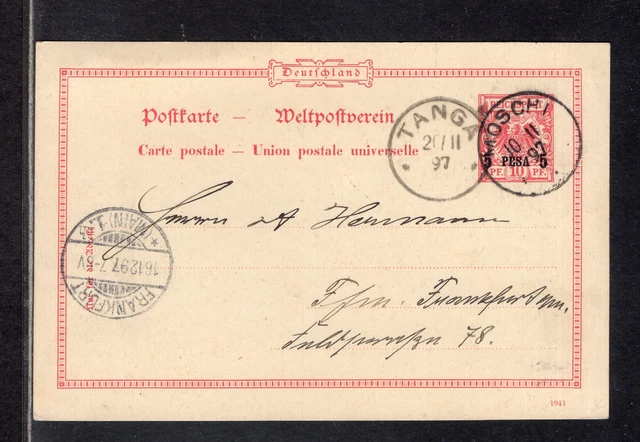 Deutschland
Postkarte – Weltpostverein
Carte postale – Union postale universelle
REICHSPOST
5 PESA 5
PF. 10 PF.
MOSCHI
10 11
97
TANGA
20/11
97
Herrn A Hermann
Frankfurt a/m.
78.
FRANKFURT
16.12.97. 7-8V
(MAIN) 1.
1943